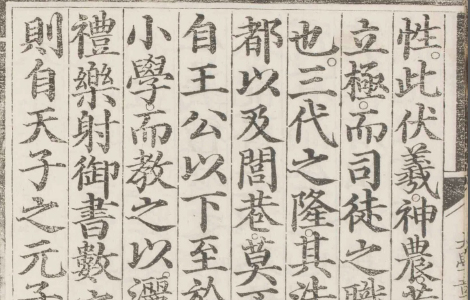 性此伏羲神農
立極而司徒之職
也三代之隆其法
都以及閭巷莫
自王公以下至於
小學而教之以灑
禮樂射御書數
則自天子之元子